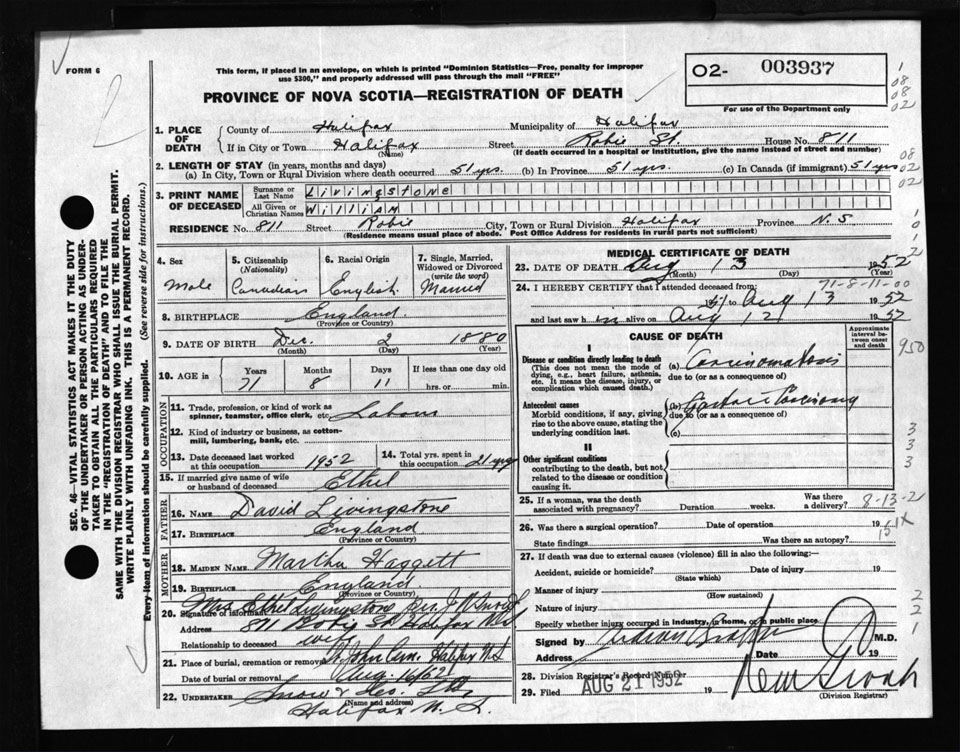 FORM 6
2
This form, if placed in an envelope, on which is printed "Dominion Statistics—Free, penalty for improper
use $300," and properly addressed will pass through the mail "FREE"
PROVINCE OF NOVA SCOTIA—REGISTRATION OF DEATH
O2- 003937
For use of the Department only
1
08
08
02
1. PLACE OF DEATH { County of Halifax Municipality of Halifax
If in City or Town Halifax (Name) Street Robie St. House No. 811
(If death occurred in a hospital or institution, give the name instead of street and number)
2. LENGTH OF STAY (in years, months and days)
(a) In City, Town or Rural Division where death occurred 51 yrs. (b) In Province 51 yrs. (c) In Canada (if immigrant) 51 yrs
08
02
02
3. PRINT NAME OF DECEASED { Surname or Last Name Livingstone
All Given or Christian Names William
RESIDENCE No. 811 Street Robie City, Town or Rural Division Halifax Province N.S
(Residence means usual place of abode. Post Office Address for residents in rural parts not sufficient)
SEC. 46—VITAL STATISTICS ACT MAKES IT THE DUTY
OF THE UNDERTAKER OR PERSON ACTING AS UNDER-
TAKER TO OBTAIN ALL THE PARTICULARS REQUIRED
IN THE "REGISTRATION OF DEATH" AND TO FILE THE
SAME WITH THE DIVISION REGISTRAR WHO SHALL ISSUE THE BURIAL PERMIT.
WRITE PLAINLY WITH UNFADING INK. THIS IS A PERMANENT RECORD.
Every item of information should be carefully supplied. (See reverse side for instructions.)
4. Sex Male
5. Citizenship (Nationality) Canadian
6. Racial Origin English
7. Single, Married, Widowed or Divorced (write the word) Married
8. BIRTHPLACE England
(Province or Country)
9. DATE OF BIRTH Dec. 2 1880
(Month) (Day) (Year)
10. AGE in Years 71 Months 8 Days 11 If less than one day
hrs. or min.
OCCUPATION
11. Trade, profession, or kind of work as
spinner, teamster, office clerk, etc. Labour
12. Kind of industry or business, as cotton-
mill, lumbering, bank, etc.
13. Date deceased last worked at this occupation 1952
14. Total yrs. spent in this occupation 21 yrs
15. If married give name of wife or husband of deceased Ethel
FATHER
16. NAME David Livingstone
17. BIRTHPLACE England
(Province or Country)
MOTHER
18. MAIDEN NAME Martha Haggett
19. BIRTHPLACE England
(Province or Country)
20. Signature of informant Mrs Ethel Livingstone
Address 811 Robie St Halifax NS
Relationship to deceased wife
21. Place of burial, cremation or removal St. John Cem. Halifax NS
Date of burial or removal Aug. 16/52
22. UNDERTAKER Snow & Co. Ltd,
(Name and address)
Halifax N. S.
MEDICAL CERTIFICATE OF DEATH
23. DATE OF DEATH Aug 13 1952
(Month) (Day) (Year)
71-8-11-00
24. I HEREBY CERTIFY that I attended deceased from:
to Aug 13 1952
and last saw him alive on Aug 12 1952
CAUSE OF DEATH
Approximate interval between onset and death
950
I
Disease or condition directly leading to death
(This does not mean the mode of
dying, e.g., heart failure, asthenia,
etc. It means the disease, injury, or
complication which caused death.)
(a) Carcinomatosis
due to (or as a consequence of)
Antecedent causes
Morbid conditions, if any, giving
rise to the above cause, stating the
underlying condition last.
(b)
due to (or as a consequence of)
(c)
II
Other significant conditions
contributing to the death, but not
related to the disease or condition
causing it.
3
3
3
25. If a woman, was the death associated with pregnancy? Duration weeks. Was there a delivery?
8-13-2
26. Was there a surgical operation? Date of operation 19
151X
State findings Was there an autopsy?
27. If death was due to external causes (violence) fill in also the following:—
Accident, suicide or homicide? Date of injury 19
(State which)
Manner of injury
(How sustained)
Nature of injury
Specify whether injury occurred in industry, in home, or in public place
2
2
1
Signed by M.D.
Address Date 19
28. Division Registrar's Record Number
29. Filed AUG 21 1952 19
(Division Registrar)